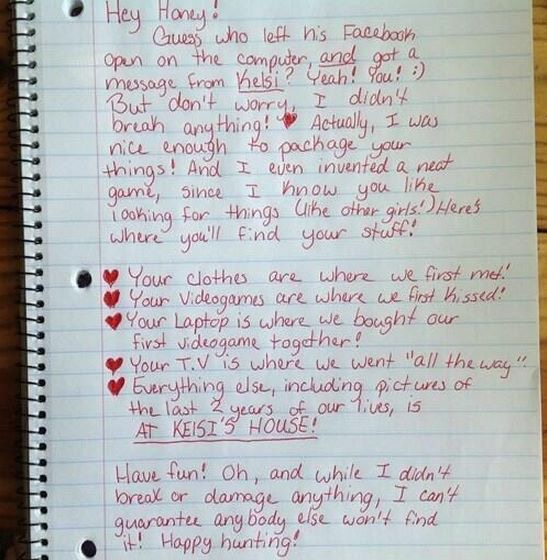 Hey Honey!
Guess who left his Facebook
open on the computer, and got a
message from Kelsi? Yeah! You! :)
But don't worry, I didn't
break anything! ♥ Actually, I was
nice enough to package your
things! And I even invented a neat
game, since I know you like
looking for things (like other girls!) Here's
where you'll find your stuff!
♥ Your clothes are where we first met!
♥ Your videogames are where we first kissed!
♥ Your Laptop is where we bought our
first videogame together!
♥ Your T.V is where we went "all the way".
♥ Everything else, including pictures of
the last 2 years of our lives, is
AT KElSI'S HOUSE!
Have fun! Oh, and while I didn't
break or damage anything, I can't
guarantee anybody else won't find
it! Happy hunting!